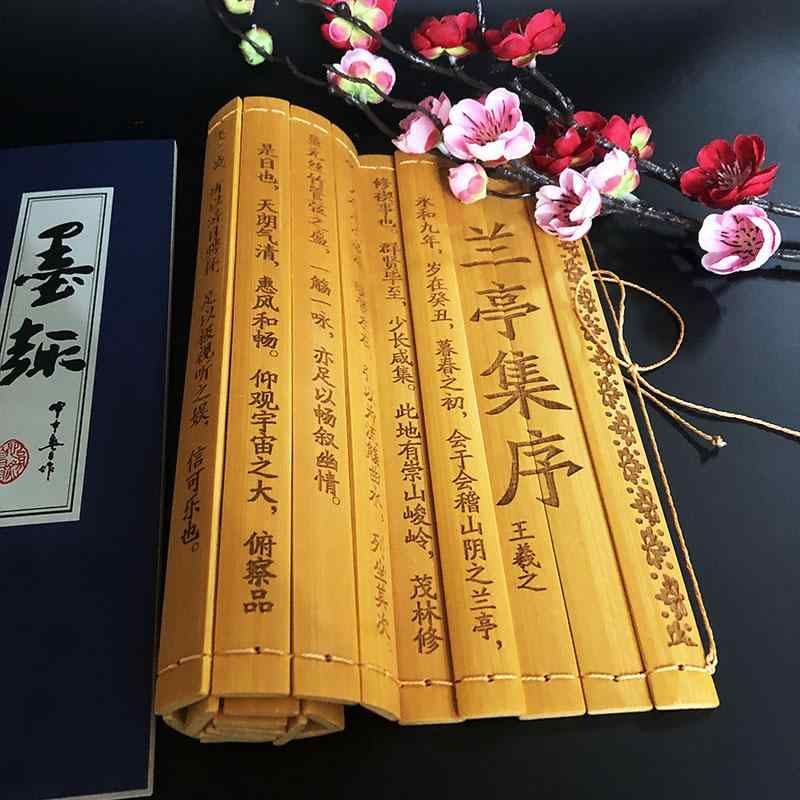 兰亭集序
王羲之
永和九年，岁在癸丑，暮春之初，会于会稽山阴之兰亭，
修禊事也。群贤毕至，少长咸集。此地有崇山峻岭，茂林修
流觞曲水，列坐其次
之盛，一觞一咏，亦足以畅叙幽情。
是日也，天朗气清，惠风和畅。仰观宇宙之大，俯察品
足以极视听之娱，信可乐也。
墨